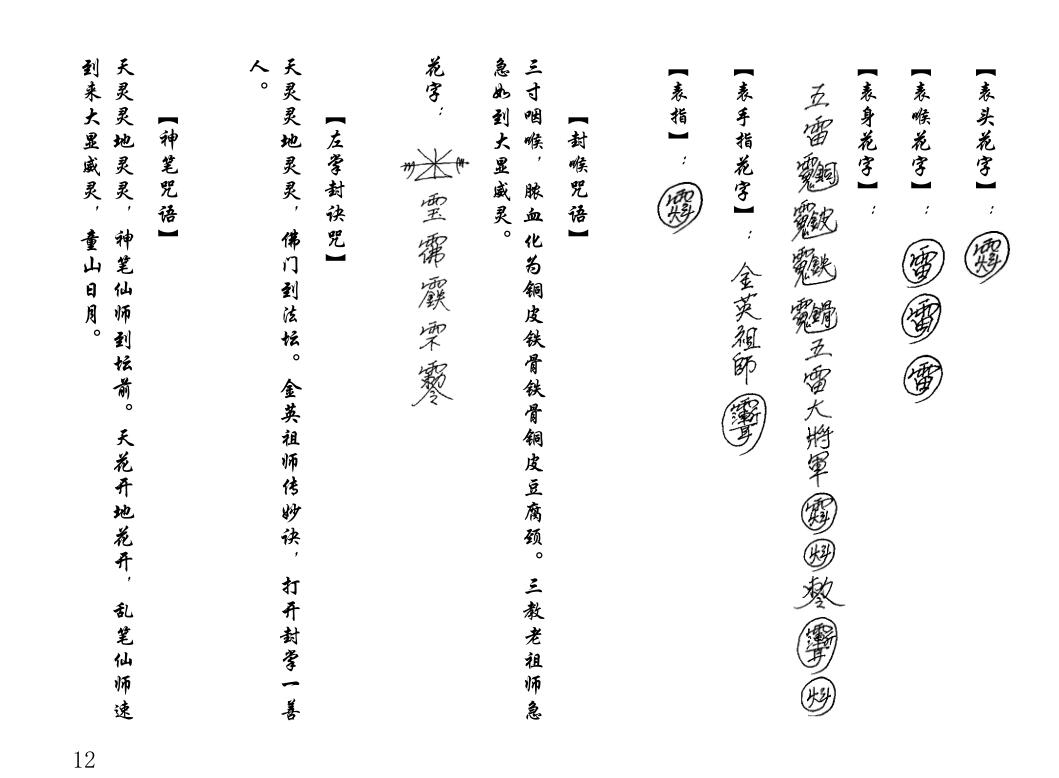 【表头花字】：
【表喉花字】：雷雷雷
【表身花字】：
五雷 五雷大將軍
【表手指花字】：金英祖師
【表指】：
【封喉咒语】
三寸咽喉，脓血化为铜皮铁骨铁骨铜皮豆腐颈。三教老祖师急
急如到大显威灵。
花字：
【左掌封诀咒】
天灵灵地灵灵，佛门到法坛。金英祖师传妙诀，打开封掌一善
人。
【神笔咒语】
天灵灵地灵灵，神笔仙师到坛前。天花开地花开，乱笔仙师速
到来大显威灵，童山日月。
12